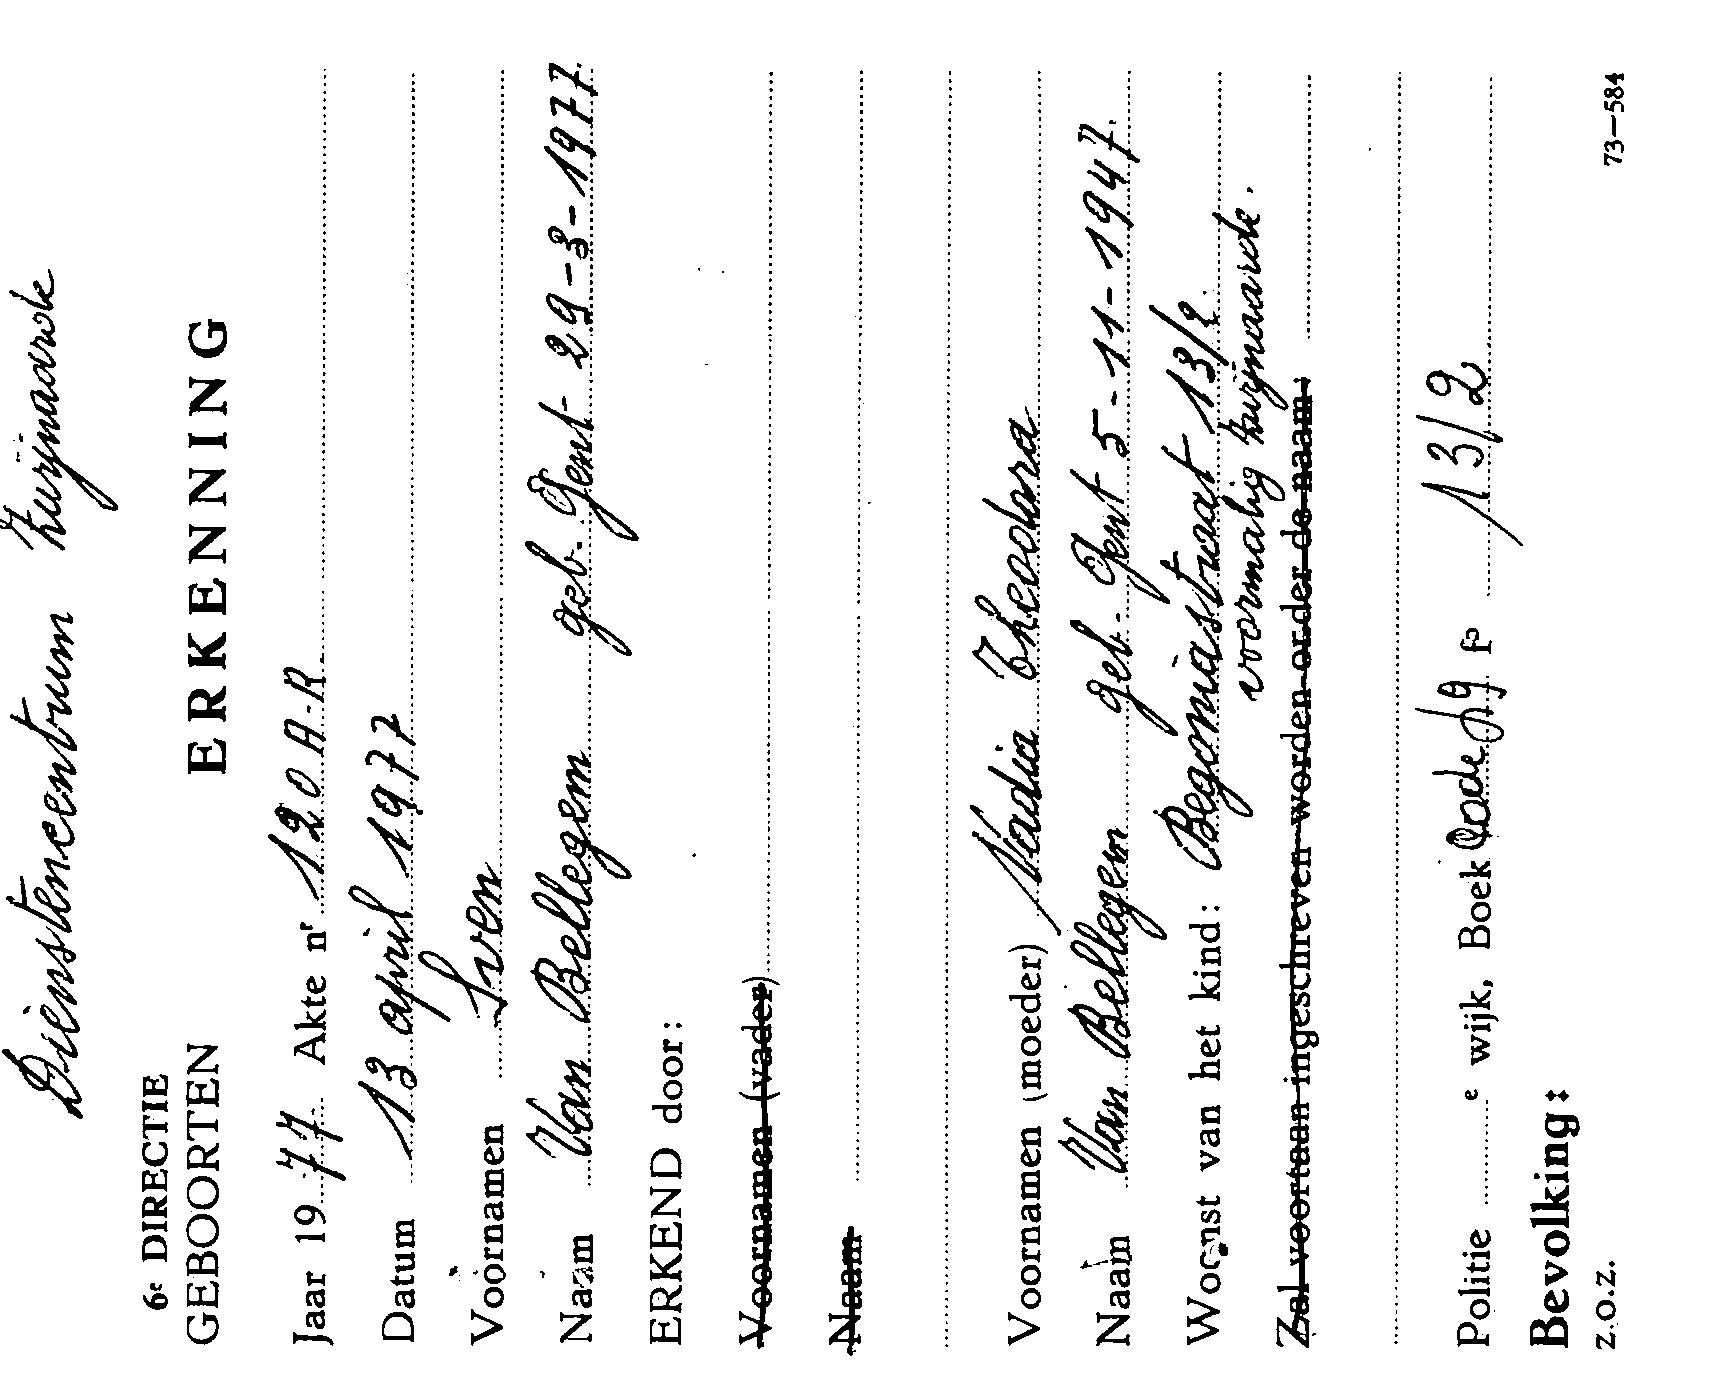 Dienstencentrum Zwijnaarde
6e DIRECTIE
GEBOORTEN
ERKENNING
Jaar 1977 Akte nr 120 A-R
Datum 13 april 1977
Voornamen Sven
Naam Van Bellegem geb. Gent 29-3-1977.
ERKEND door:
Voornamen (vader)
Naam
Voornamen (moeder) Nadia Theodora
Naam Van Bellegem geb. Gent 5-11-1947.
Woonst van het kind: Begoniastraat 13/2.
voormalig Zwijnaarde.
Zal voortaan ingeschreven worden onder de naam:
Politie e wijk, Boek fo 13/2
Bevolking:
z.o.z.
73-584